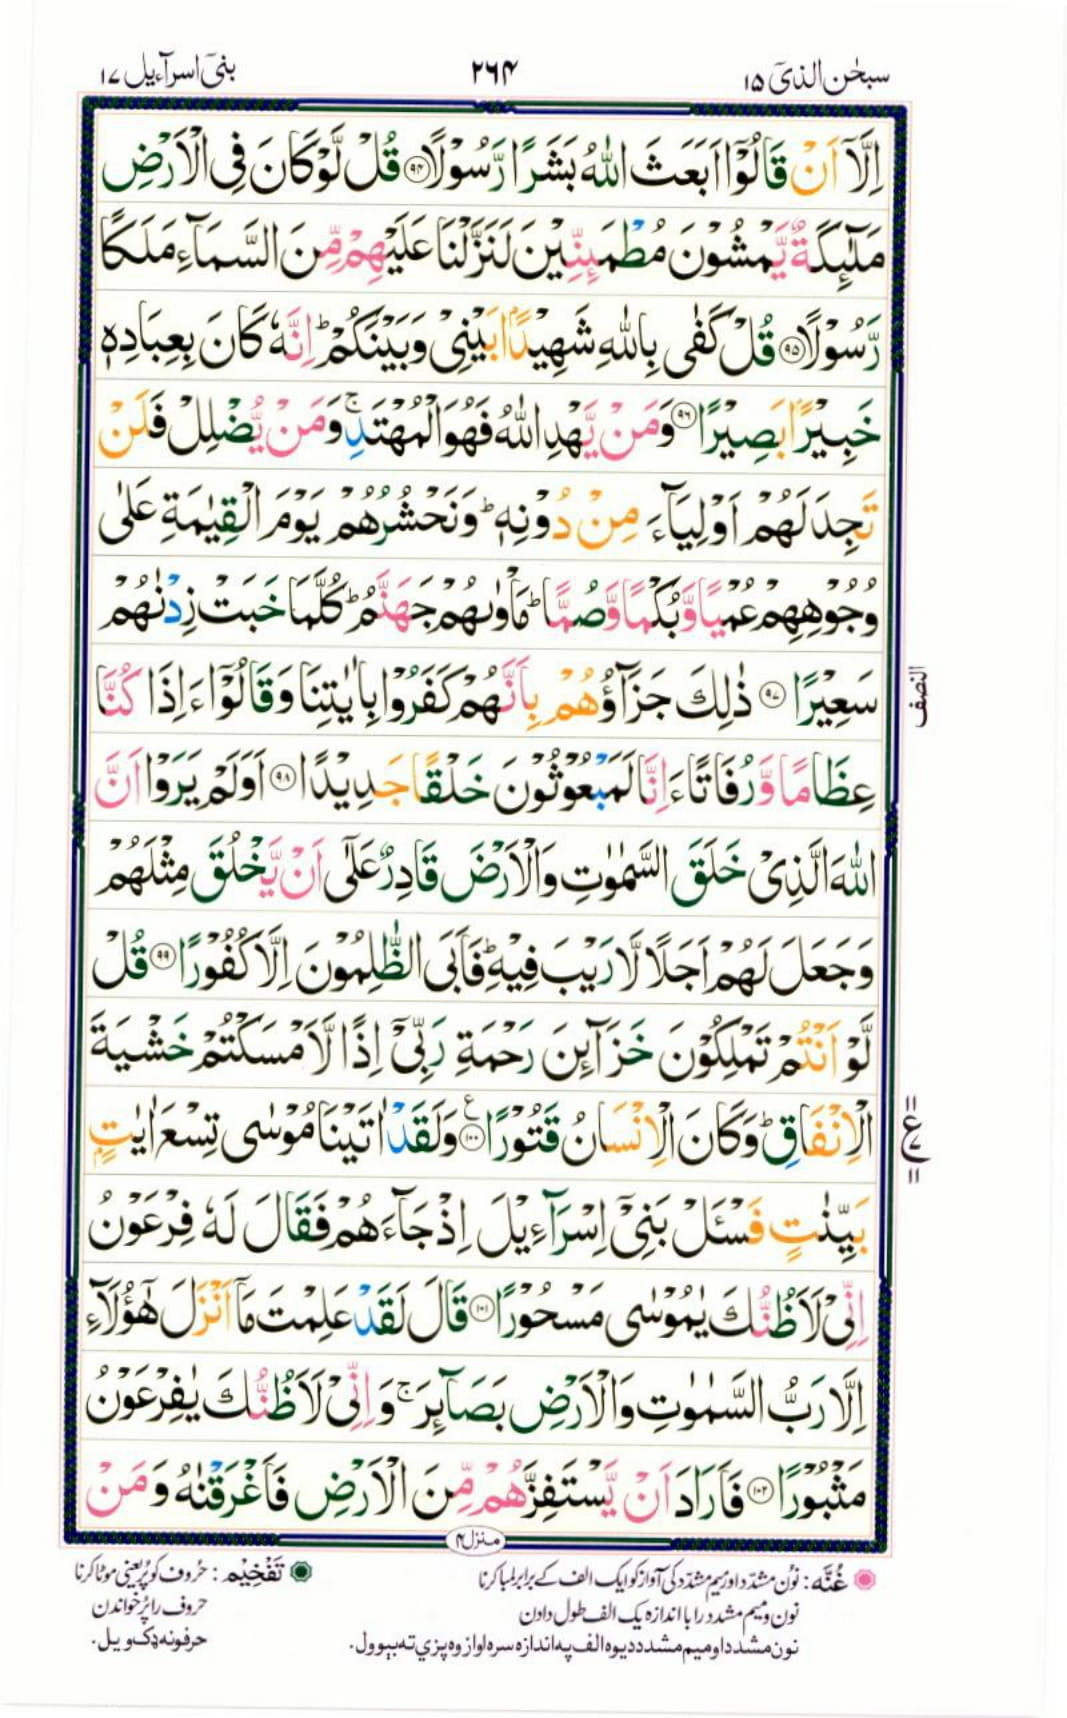 سبحٰن الذیٓ ۱۵
۲۶۴
بنیٓ اسرآءیل ۱۷
اِلَّاۤ اَنْ قَالُوْۤا اَبَعَثَ اللّٰهُ بَشَرًا رَّسُوْلًا ۹۴ قُلْ لَّوْ كَانَ فِی الْاَرْضِ
مَلٰٓىِٕكَةٌ یَّمْشُوْنَ مُطْمَىِٕنِّیْنَ لَنَزَّلْنَا عَلَیْهِمْ مِّنَ السَّمَآءِ مَلَكًا
رَّسُوْلًا ۹۵ قُلْ كَفٰى بِاللّٰهِ شَهِیْدًۢا بَیْنِیْ وَبَیْنَكُمْ ؕ اِنَّهٗ كَانَ بِعِبَادِهٖ
خَبِیْرًۢا بَصِیْرًا ۹۶ وَمَنْ یَّهْدِ اللّٰهُ فَهُوَ الْمُهْتَدِ ۚ وَمَنْ یُّضْلِلْ فَلَنْ
تَجِدَ لَهُمْ اَوْلِیَآءَ مِنْ دُوْنِهٖ ؕ وَنَحْشُرُهُمْ یَوْمَ الْقِیٰمَةِ عَلٰى
وُجُوْهِهِمْ عُمْیًا وَّبُكْمًا وَّصُمًّا ؕ مَاْوٰىهُمْ جَهَنَّمُ ؕ كُلَّمَا خَبَتْ زِدْنٰهُمْ
سَعِیْرًا ۹۷ ذٰلِكَ جَزَآؤُهُمْ بِاَنَّهُمْ كَفَرُوْا بِاٰیٰتِنَا وَقَالُوْۤا ءَاِذَا كُنَّا
عِظَامًا وَّرُفَاتًا ءَاِنَّا لَمَبْعُوْثُوْنَ خَلْقًا جَدِیْدًا ۹۸ اَوَلَمْ یَرَوْا اَنَّ
اللّٰهَ الَّذِیْ خَلَقَ السَّمٰوٰتِ وَالْاَرْضَ قَادِرٌ عَلٰۤى اَنْ یَّخْلُقَ مِثْلَهُمْ
وَجَعَلَ لَهُمْ اَجَلًا لَّا رَیْبَ فِیْهِ ؕ فَاَبَى الظّٰلِمُوْنَ اِلَّا كُفُوْرًا ۹۹ قُلْ
لَّوْ اَنْتُمْ تَمْلِكُوْنَ خَزَآىِٕنَ رَحْمَةِ رَبِّیْۤ اِذًا لَّاَمْسَكْتُمْ خَشْیَةَ
الْاِنْفَاقِ ؕ وَكَانَ الْاِنْسَانُ قَتُوْرًا ۱۰۰ ع وَلَقَدْ اٰتَیْنَا مُوْسٰى تِسْعَ اٰیٰتٍۭ
بَیِّنٰتٍ فَسْـَٔلْ بَنِیْۤ اِسْرَآءِیْلَ اِذْ جَآءَهُمْ فَقَالَ لَهٗ فِرْعَوْنُ
اِنِّیْ لَاَظُنُّكَ یٰمُوْسٰى مَسْحُوْرًا ۱۰۱ قَالَ لَقَدْ عَلِمْتَ مَاۤ اَنْزَلَ هٰۤؤُلَآءِ
اِلَّا رَبُّ السَّمٰوٰتِ وَالْاَرْضِ بَصَآىِٕرَ ۚ وَاِنِّیْ لَاَظُنُّكَ یٰفِرْعَوْنُ
مَثْبُوْرًا ۱۰۲ فَاَرَادَ اَنْ یَّسْتَفِزَّهُمْ مِّنَ الْاَرْضِ فَاَغْرَقْنٰهُ وَمَنْ
النصف
منزل ۴
غُنَّه: نون مشدّد اور میم مشدّد کی آواز کو ایک الف کے برابر لمبا کرنا
نون و میم مشدد را با اندازه یک الف طول دادن
نون مشدد او میم مشدد د یوه الف په اندازه سره اواز وه پزې ته بېوول.
تَفْخِیْم: حُروف کو پُر یعنی موٹا کرنا
حروف را پُر خواندن
حرفونه ډک ویل.